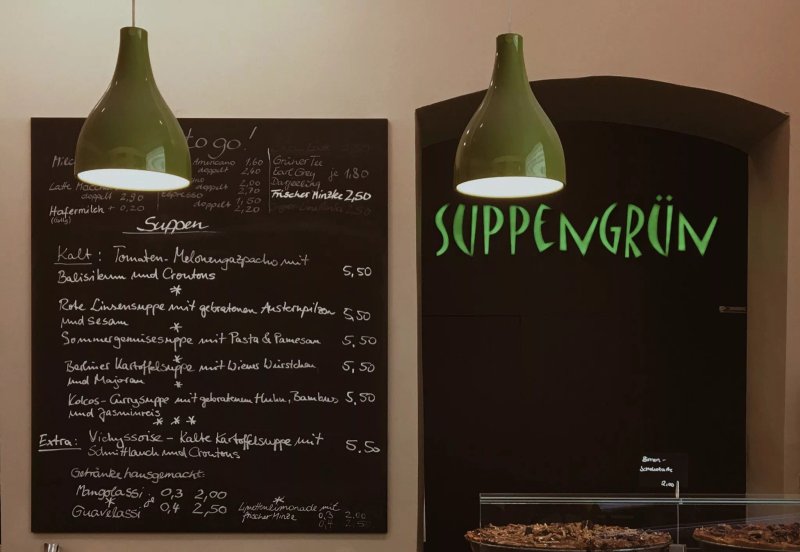 to go!
Americano 1,60
doppelt 2,40
2,00
doppelt 2,70
Espresso 1,50
doppelt 2,20
Latte
doppelt 2,90
Hafermilch + 0,20
Grüner Tee
Earl Grey je 1,80
Darjeeling
Frischer Minztee 2,50
Suppen
Kalt: Tomaten-Melonengazpacho mit
Balisikum und Croutons 5,50
*
Rote Linsensuppe mit gebratenen Austernpilzen 5,50
und Sesam
*
Sommergemüsesuppe mit Pasta & Parmesan 5,50
*
Berliner Kartoffelsuppe mit Wiener Würstchen 5,50
und Majoran *
Kokos-Currysuppe mit gebratenem Huhn, Bambus 5,50
und Jasminreis
* * *
Extra: Vichyssoise - Kalte Kartoffelsuppe mit 5,50
Schnittlauch und Croutons
Getränke hausgemacht:
Mangolassi 0,3 2,00
* je
Guavelassi 0,4 2,50
*
Limettenlimonade mit
frischer Minze 0,3 2,00
0,4 2,50
SUPPENGRÜN
Birnen-
2,00